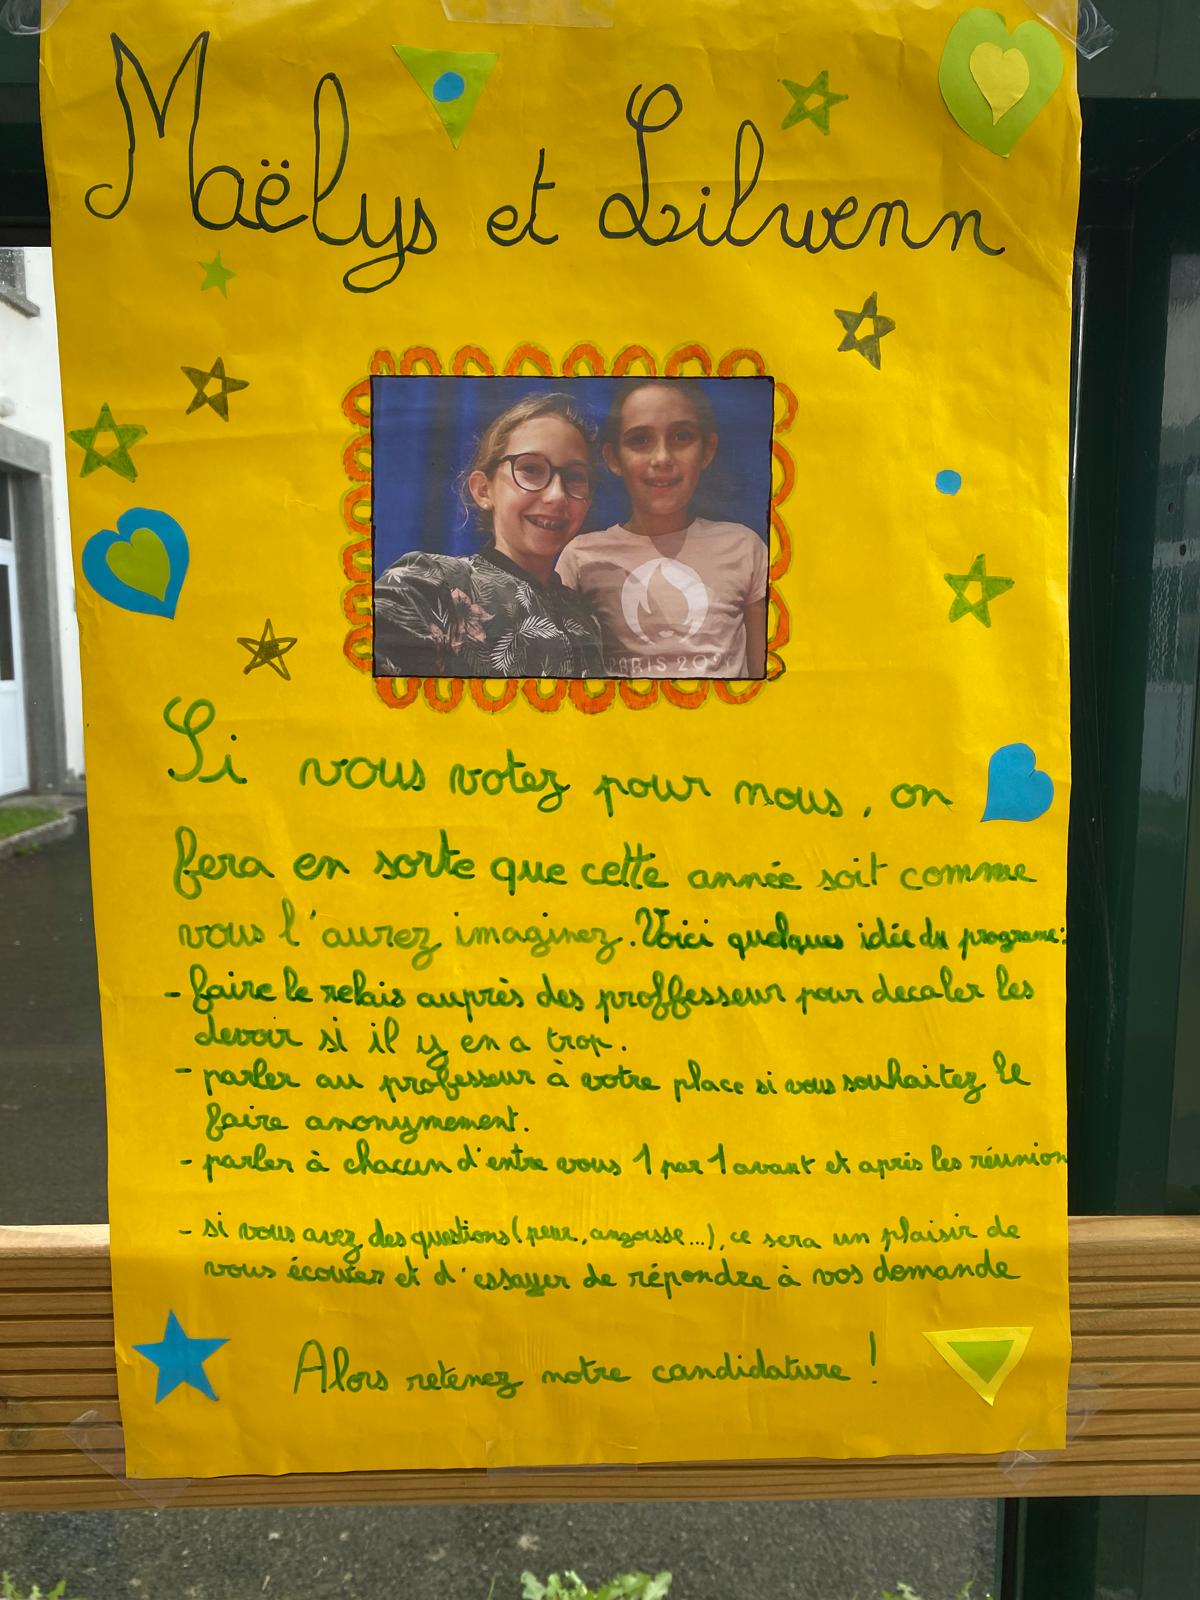 Maëlys et Lilwenn
PARIS 202
Si vous votez pour nous, on
fera en sorte que cette année soit comme
vous l'aurez imaginez. Voici quelques idée du programe:
- faire le relais auprès des proffesseur pour decaler les
devoir si il y en a trop.
- parler au professeur à votre place si vous souhaitez le
faire anonymement.
- parler à chacun d'entre vous 1 par 1 avant et après les réunion
- si vous avez des questions (peur, angoisse...), ce sera un plaisir de
vous écouter et d'essayer de répondre à vos demande
Alors retenez notre candidature !